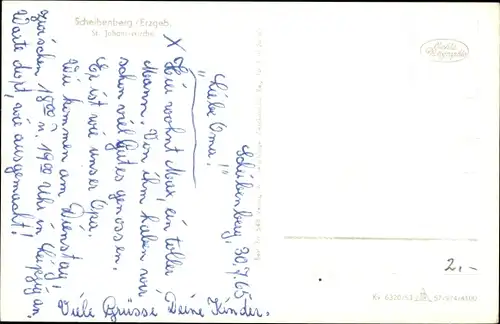 Scheibenberg /Erzgeb.
St. Johanniskirche
Echte Photographie
Scheibenberg, 30.7.65
"Liebe Oma!"
X Hier wohnt Max, ein toller
Mann. Von ihm haben wir
schon viel Gutes genossen.
Er ist wie unser Opa.
Wir kommen am Dienstag,
zwischen 18⁰⁰ u. 19⁰⁰ Uhr in Leipzig an.
Warte dort, wie ausgemacht!
Viele Grüsse Deine Kinder.
2,-